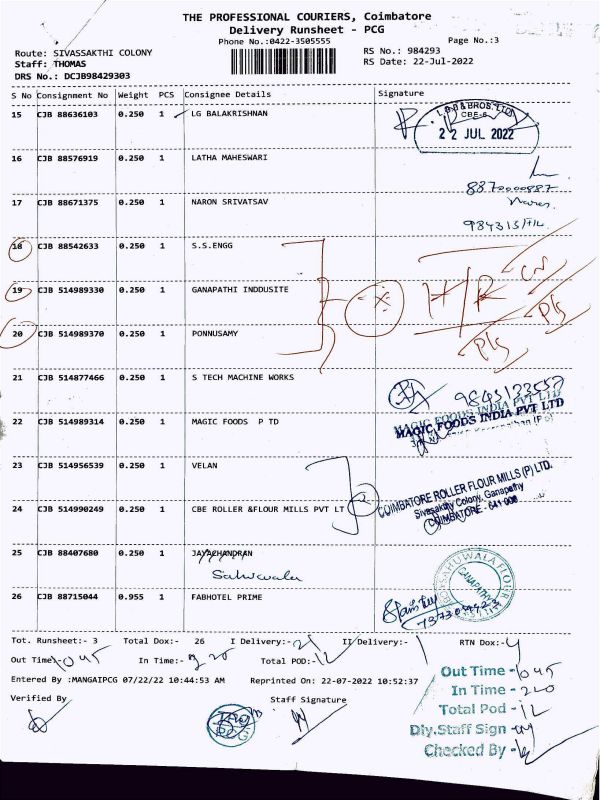 THE PROFESSIONAL COURIERS, Coimbatore
Delivery Runsheet - PCG
Phone No.:0422-3505555
Page No.:3
Route: SIVASSAKTHI COLONY
RS No.: 984293
Staff: THOMAS
RS Date: 22-Jul-2022
DRS No.: DCJB98429303
S No Consignment No Weight PCS Consignee Details Signature
15 CJB 88636103 0.250 1 LG BALAKRISHNAN
L.G.B & BROS. LTD
CBE-6
22 JUL 2022
16 CJB 88576919 0.250 1 LATHA MAHESWARI
8870000887
17 CJB 88671375 0.250 1 NARON SRIVATSAV
18 CJB 88542633 0.250 1 S.S.ENGG
19 CJB 514989330 0.250 1 GANAPATHI INDDUSITE
20 CJB 514989370 0.250 1 PONNUSAMY
21 CJB 514877466 0.250 1 S TECH MACHINE WORKS
22 CJB 514989314 0.250 1 MAGIC FOODS P TD
MAGIC FOODS INDIA PVT LTD
23 CJB 514956539 0.250 1 VELAN
24 CJB 514990249 0.250 1 CBE ROLLER &FLOUR MILLS PVT LT
COIMBATORE ROLLER FLOUR MILLS (P) LTD.
Sivasakthy Colony, Ganapathy
COIMBATORE - 641 006
25 CJB 88407680 0.250 1 JAYACHANDRAN
26 CJB 88715044 0.955 1 FABHOTEL PRIME
Tot. Runsheet:- 3 Total Dox:- 26 I Delivery:- 21 II Delivery:- 1 RTN Dox:- 4
Out Time:- 1045 In Time:- 220 Total POD:- 12
Entered By :MANGAIPCG 07/22/22 10:44:53 AM Reprinted On: 22-07-2022 10:52:37
Verified By Staff Signature
Out Time - 1045
In Time - 220
Total Pod - 12
Dly.Staff Sign -
Checked By -